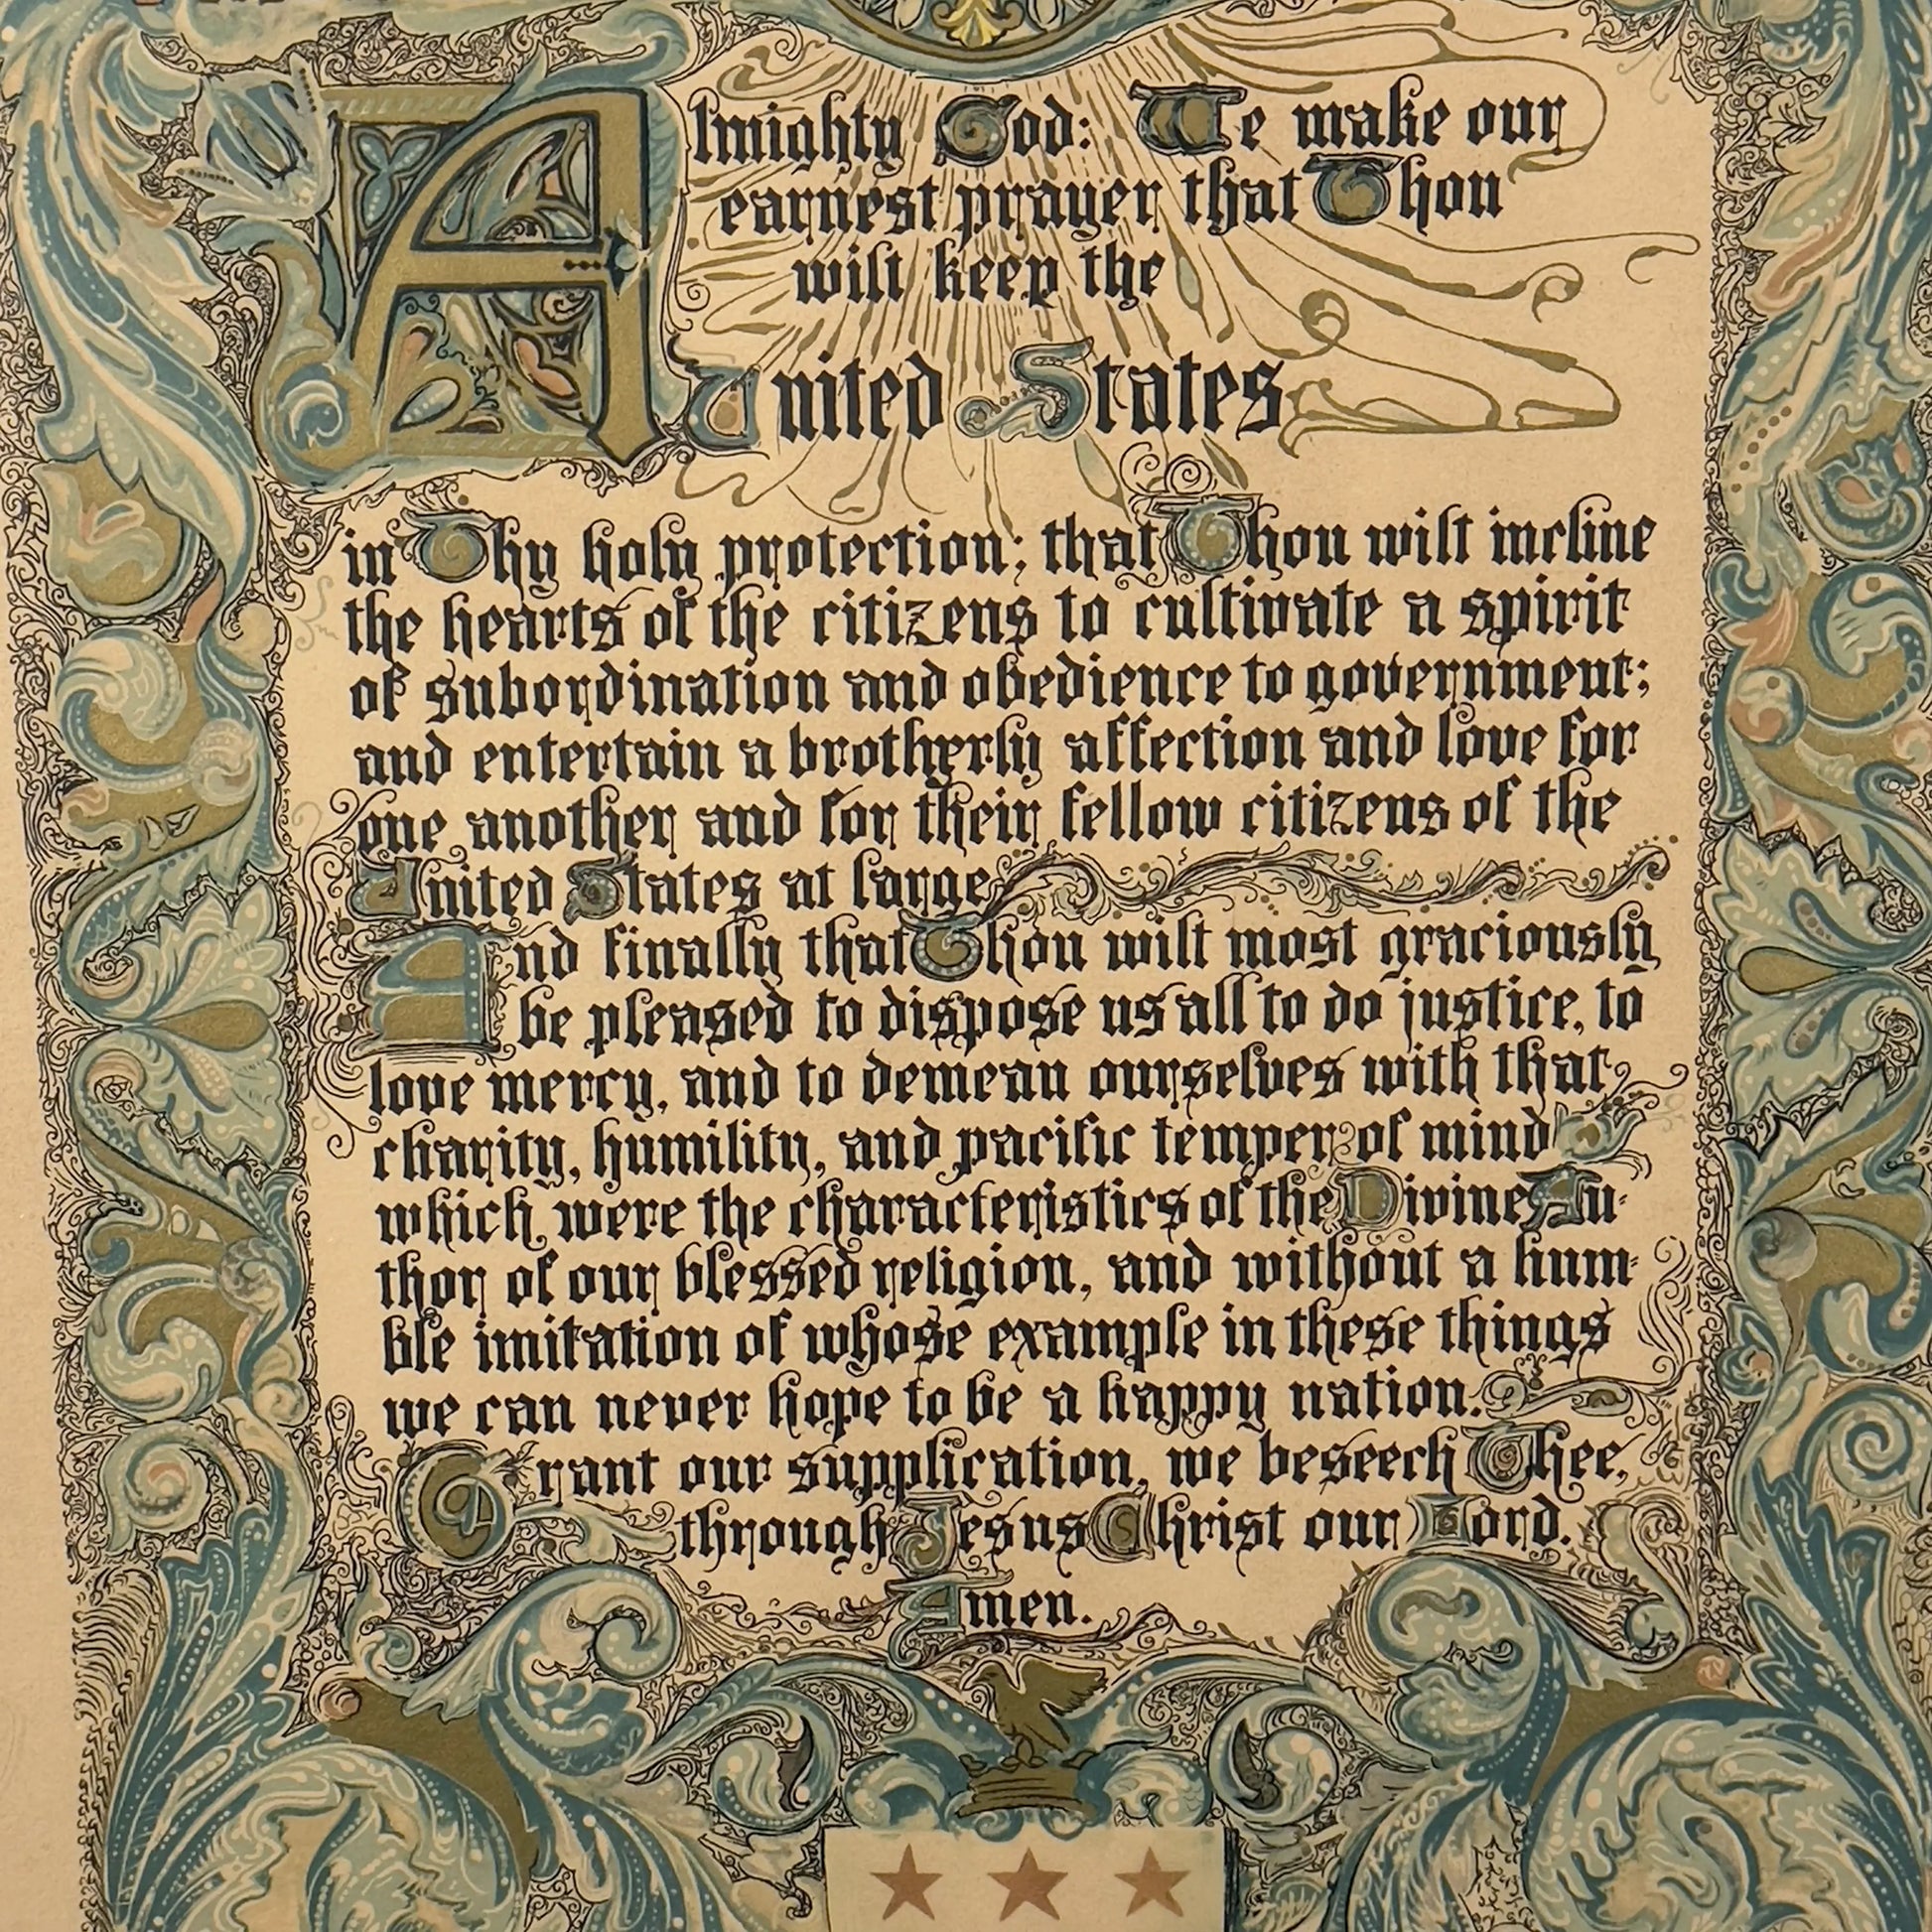 Almighty God: We make our
earnest prayer that Thou
wilt keep the
United States
in Thy holy protection; that Thou wilt incline
the hearts of the citizens to cultivate a spirit
of subordination and obedience to government;
and entertain a brotherly affection and love for
one another and for their fellow citizens of the
United States at large
And finally that Thou wilt most graciously
be pleased to dispose us all to do justice, to
love mercy, and to demean ourselves with that
charity, humility, and pacific temper of mind
which were the characteristics of the Divine Au-
thor of our blessed religion, and without a hum-
ble imitation of whose example in these things
we can never hope to be a happy nation.
Grant our supplication, we beseech Thee,
through Jesus Christ our Lord.
Amen.